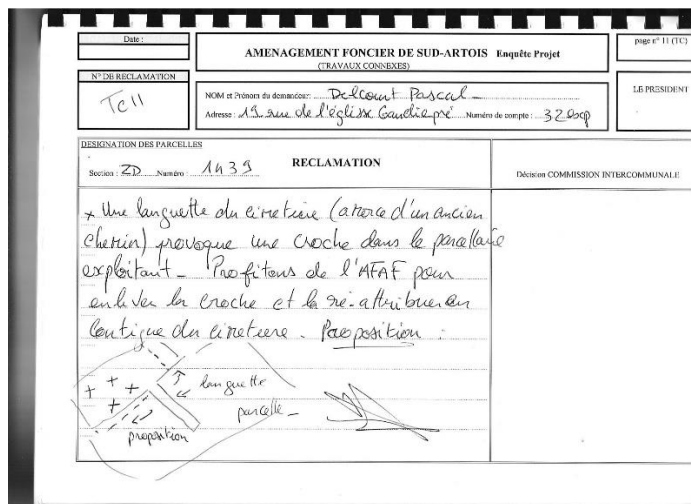 Date :
AMENAGEMENT FONCIER DE SUD-ARTOIS Enquête Projet
(TRAVAUX CONNEXES)
page n° 11 (TC)
N° DE RECLAMATION
TC11
NOM et Prénom du demandeur: Delcourt Pascal
Adresse : 19 rue de l'église Gaudiempré Numéro de compte :
LE PRESIDENT
DESIGNATION DES PARCELLES
Section : ZD Numéro : 1439
RECLAMATION
Décision COMMISSION INTERCOMMUNALE
x Une languette du cimetière (amorce d'un ancien
chemin) provoque une croche dans le parcellaire
exploitant - Profitons de l'AFAF pour
enlever la croche et la ré-attribuer en
contigue du cimetiere. Proposition :
languette
parcelle -
proposition